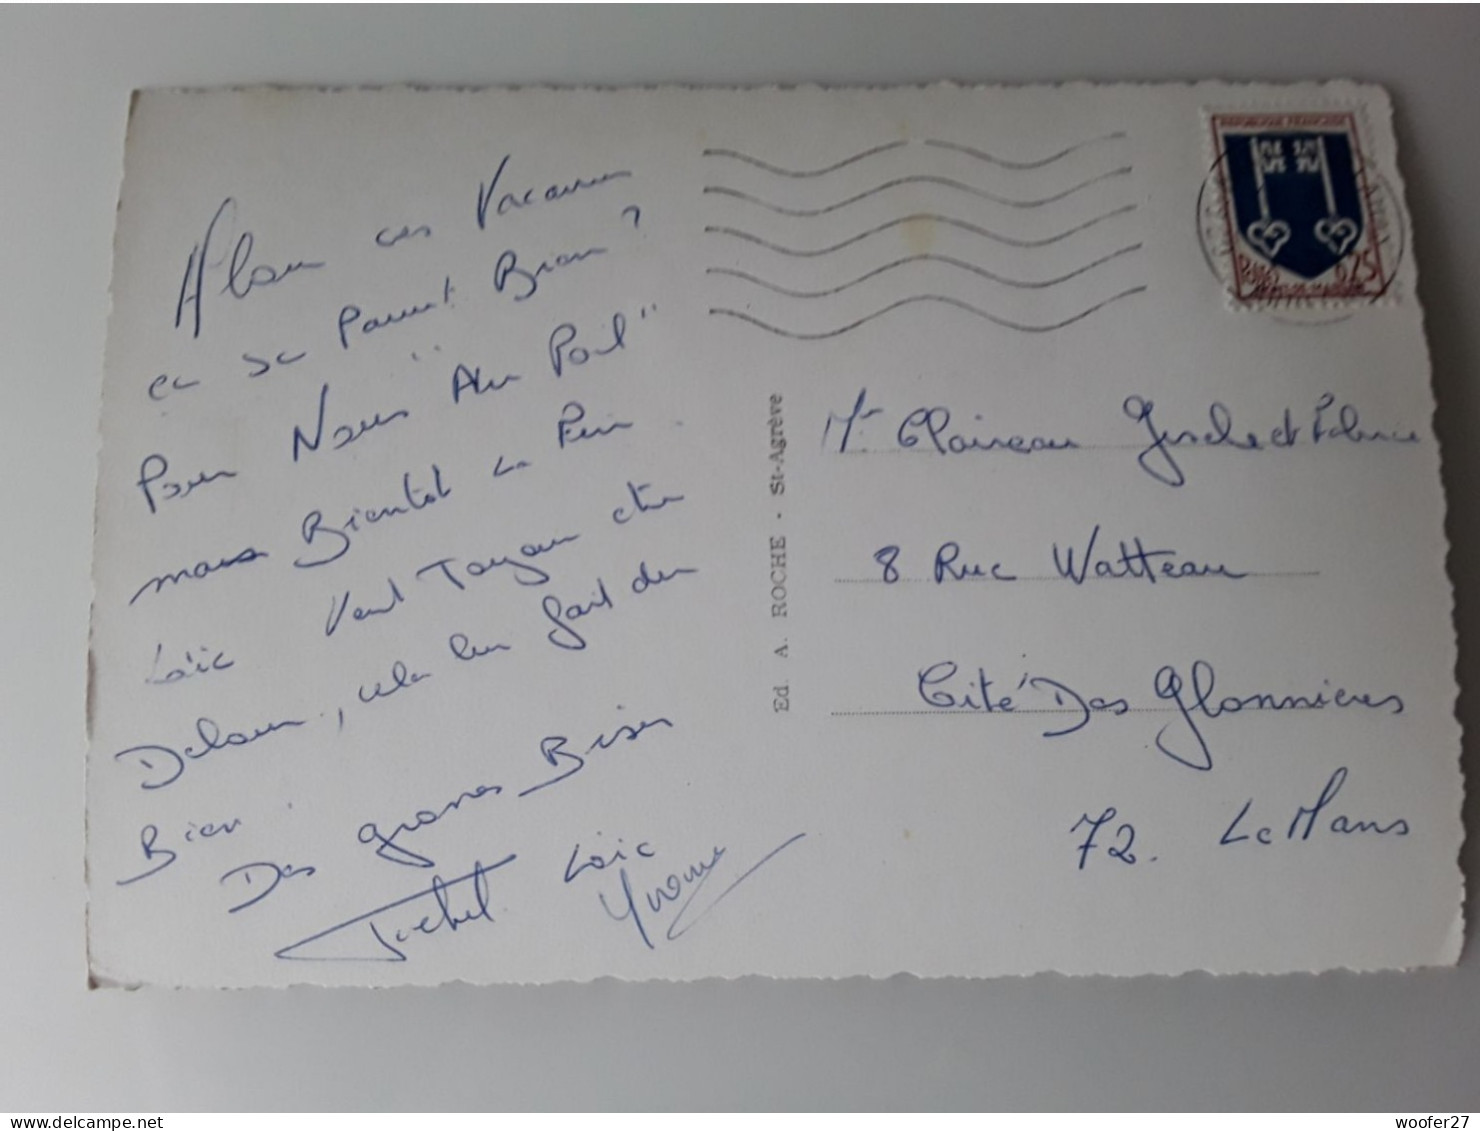 Alors ces Vacances
ca se Passent Bien ?
Pour Nous "Au Poil"
mais Bientot La Fin.
Loïc Veut Toujours etre
Dehors, cela lui fait du
Bien.
Des grosses Bises
Loïc
Michel Yvonne
Ed. A. ROCHE - St-Agrève
REPUBLIQUE FRANÇAISE
0,25
MONT-DE-MARSAN
Mr Claireau et
8 Rue Watteau
Cité Des Glonnieres
72. Le Mans
woofer27